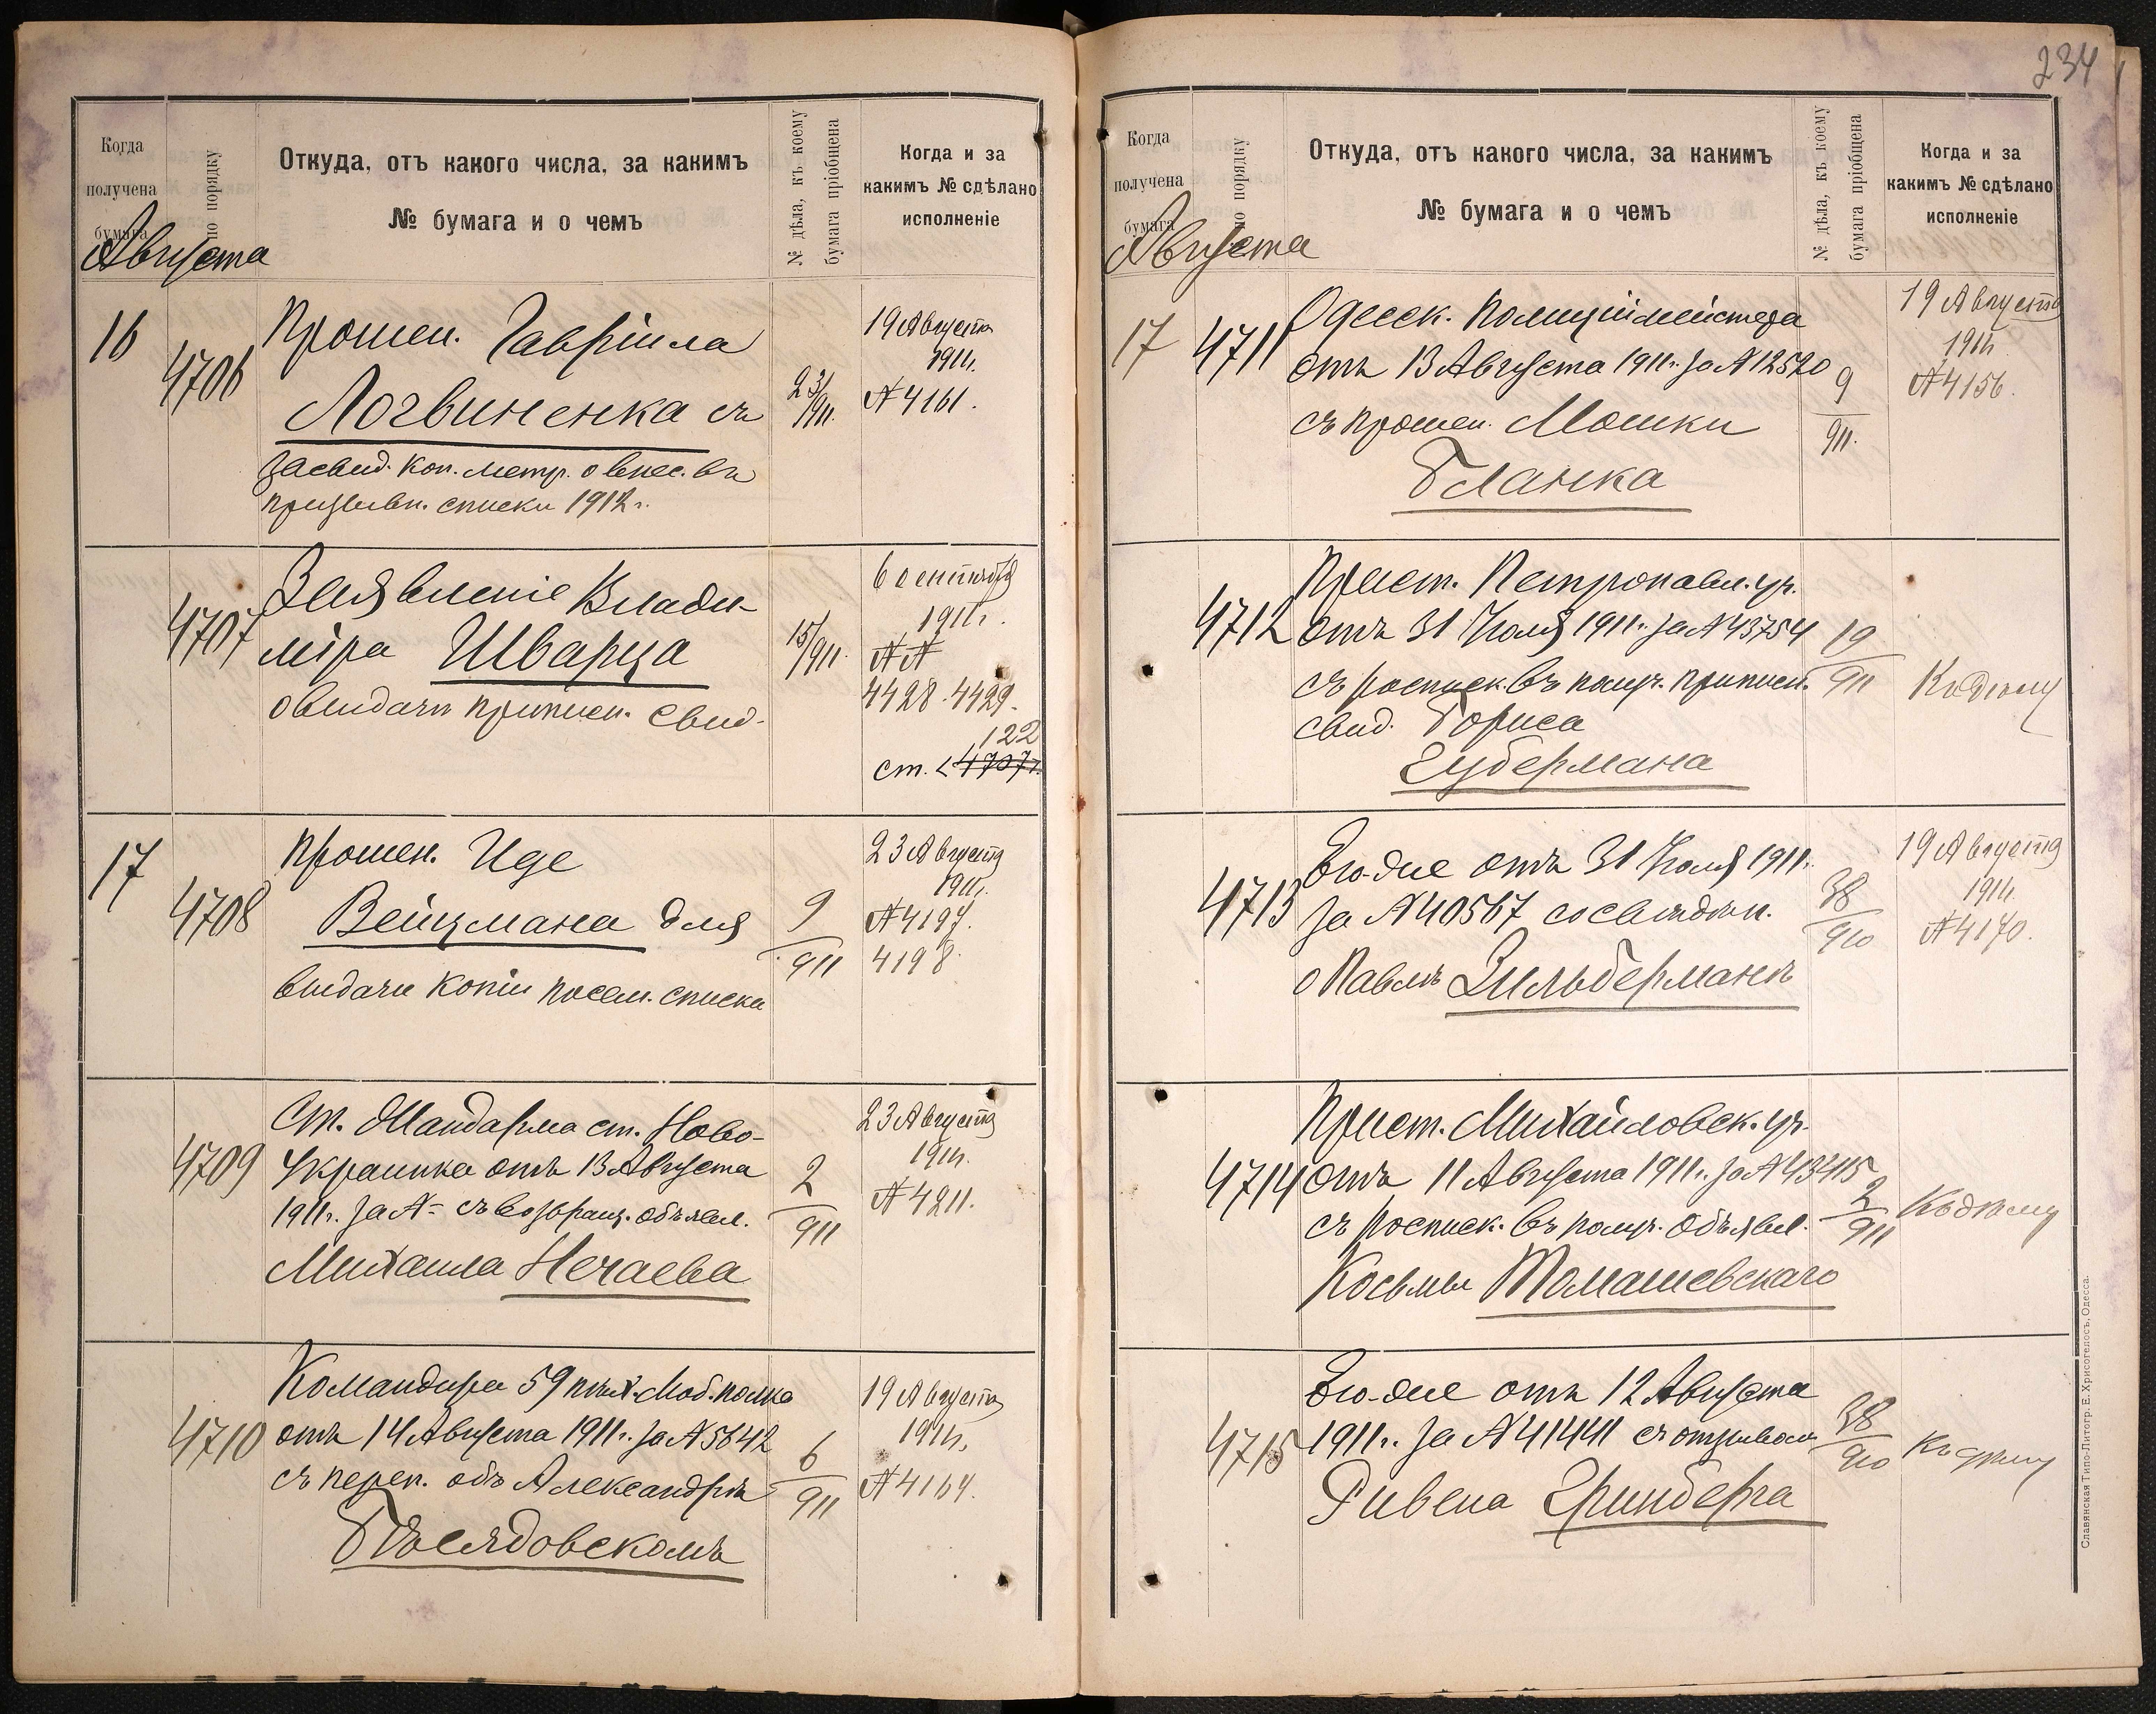 234
Когда
получена
бумага
по порядку
Откуда, отъ какого числа, за какимъ
№ бумага и о чемъ
№ дѣла, къ коему
бумага пріобщена
Когда и за
какимъ № сдѣлано
исполненіе
Августа
16
4706
Прошен. Гавріила
Логвиненка съ
засвид. коп. метр. о внес. въ
призывн. списки 1912 г.
23/911.
19 Августа
1911 г.
№ 4161.
4707
Заявленіе Влади-
міра Шварца
о выдачи приписн. свид.
15/911.
6 сентября
1911 г.
№№
4428. 4429.
122
ст. < 4707.
17
4708
Прошен. Иде
Вейцмана для
выдачи копіи посем. списка
9
911
23 Августа
1911 г.
№ 4197.
4198.
4709
Ст. Жандарма ст. Ново-
Украинка отъ 13 Августа
1911 г. за № - съ возвращ. объявл.
Михаила Нечаева
2
911
23 Августа
1911 г.
№ 4211.
4710
Командира 59 пѣх. полка
отъ 14 Августа 1911 г. за № 5642
съ переп. объ Александрѣ
6
911
19 Августа
1911 г.
№ 4164.
Когда
получена
бумага
по порядку
Откуда, отъ какого числа, за какимъ
№ бумага и о чемъ
№ дѣла, къ коему
бумага пріобщена
Когда и за
какимъ № сдѣлано
исполненіе
Августа
17
4711
Одесск. Полиціймейстера
отъ 13 Августа 1911 г. за № 12520
съ прошен. Мошки
Бланка
9
911.
19 Августа
1911
№ 4156.
4712
Прист. Петропавл. уч.
отъ 31 Іюля 1911 г. за № 43754
съ росписк. въ получ. приписн.
свид. Бориса
Губермана
19
911
Къ дѣлу
4713
Его-же отъ 31 Іюля 1911 г.
за № 40567 со свѣдѣн.
о Павлѣ Зильберманѣ
38
910
19 Августа
1911 г.
№ 4170.
4714
Прист. Михайловск. уч.
отъ 11 Августа 1911 г. за № 43415
съ росписк. въ получ. объявл.
Косьмы Томашевскаго
2
911
Къ дѣлу
4715
Его-же отъ 12 Августа
1911 г. за № 41441 съ отзывом
Ривена Гринберга
38
910
Къ дѣлу
Славянская Типо-Литогр. Е. Хрисогелосъ, Одесса.